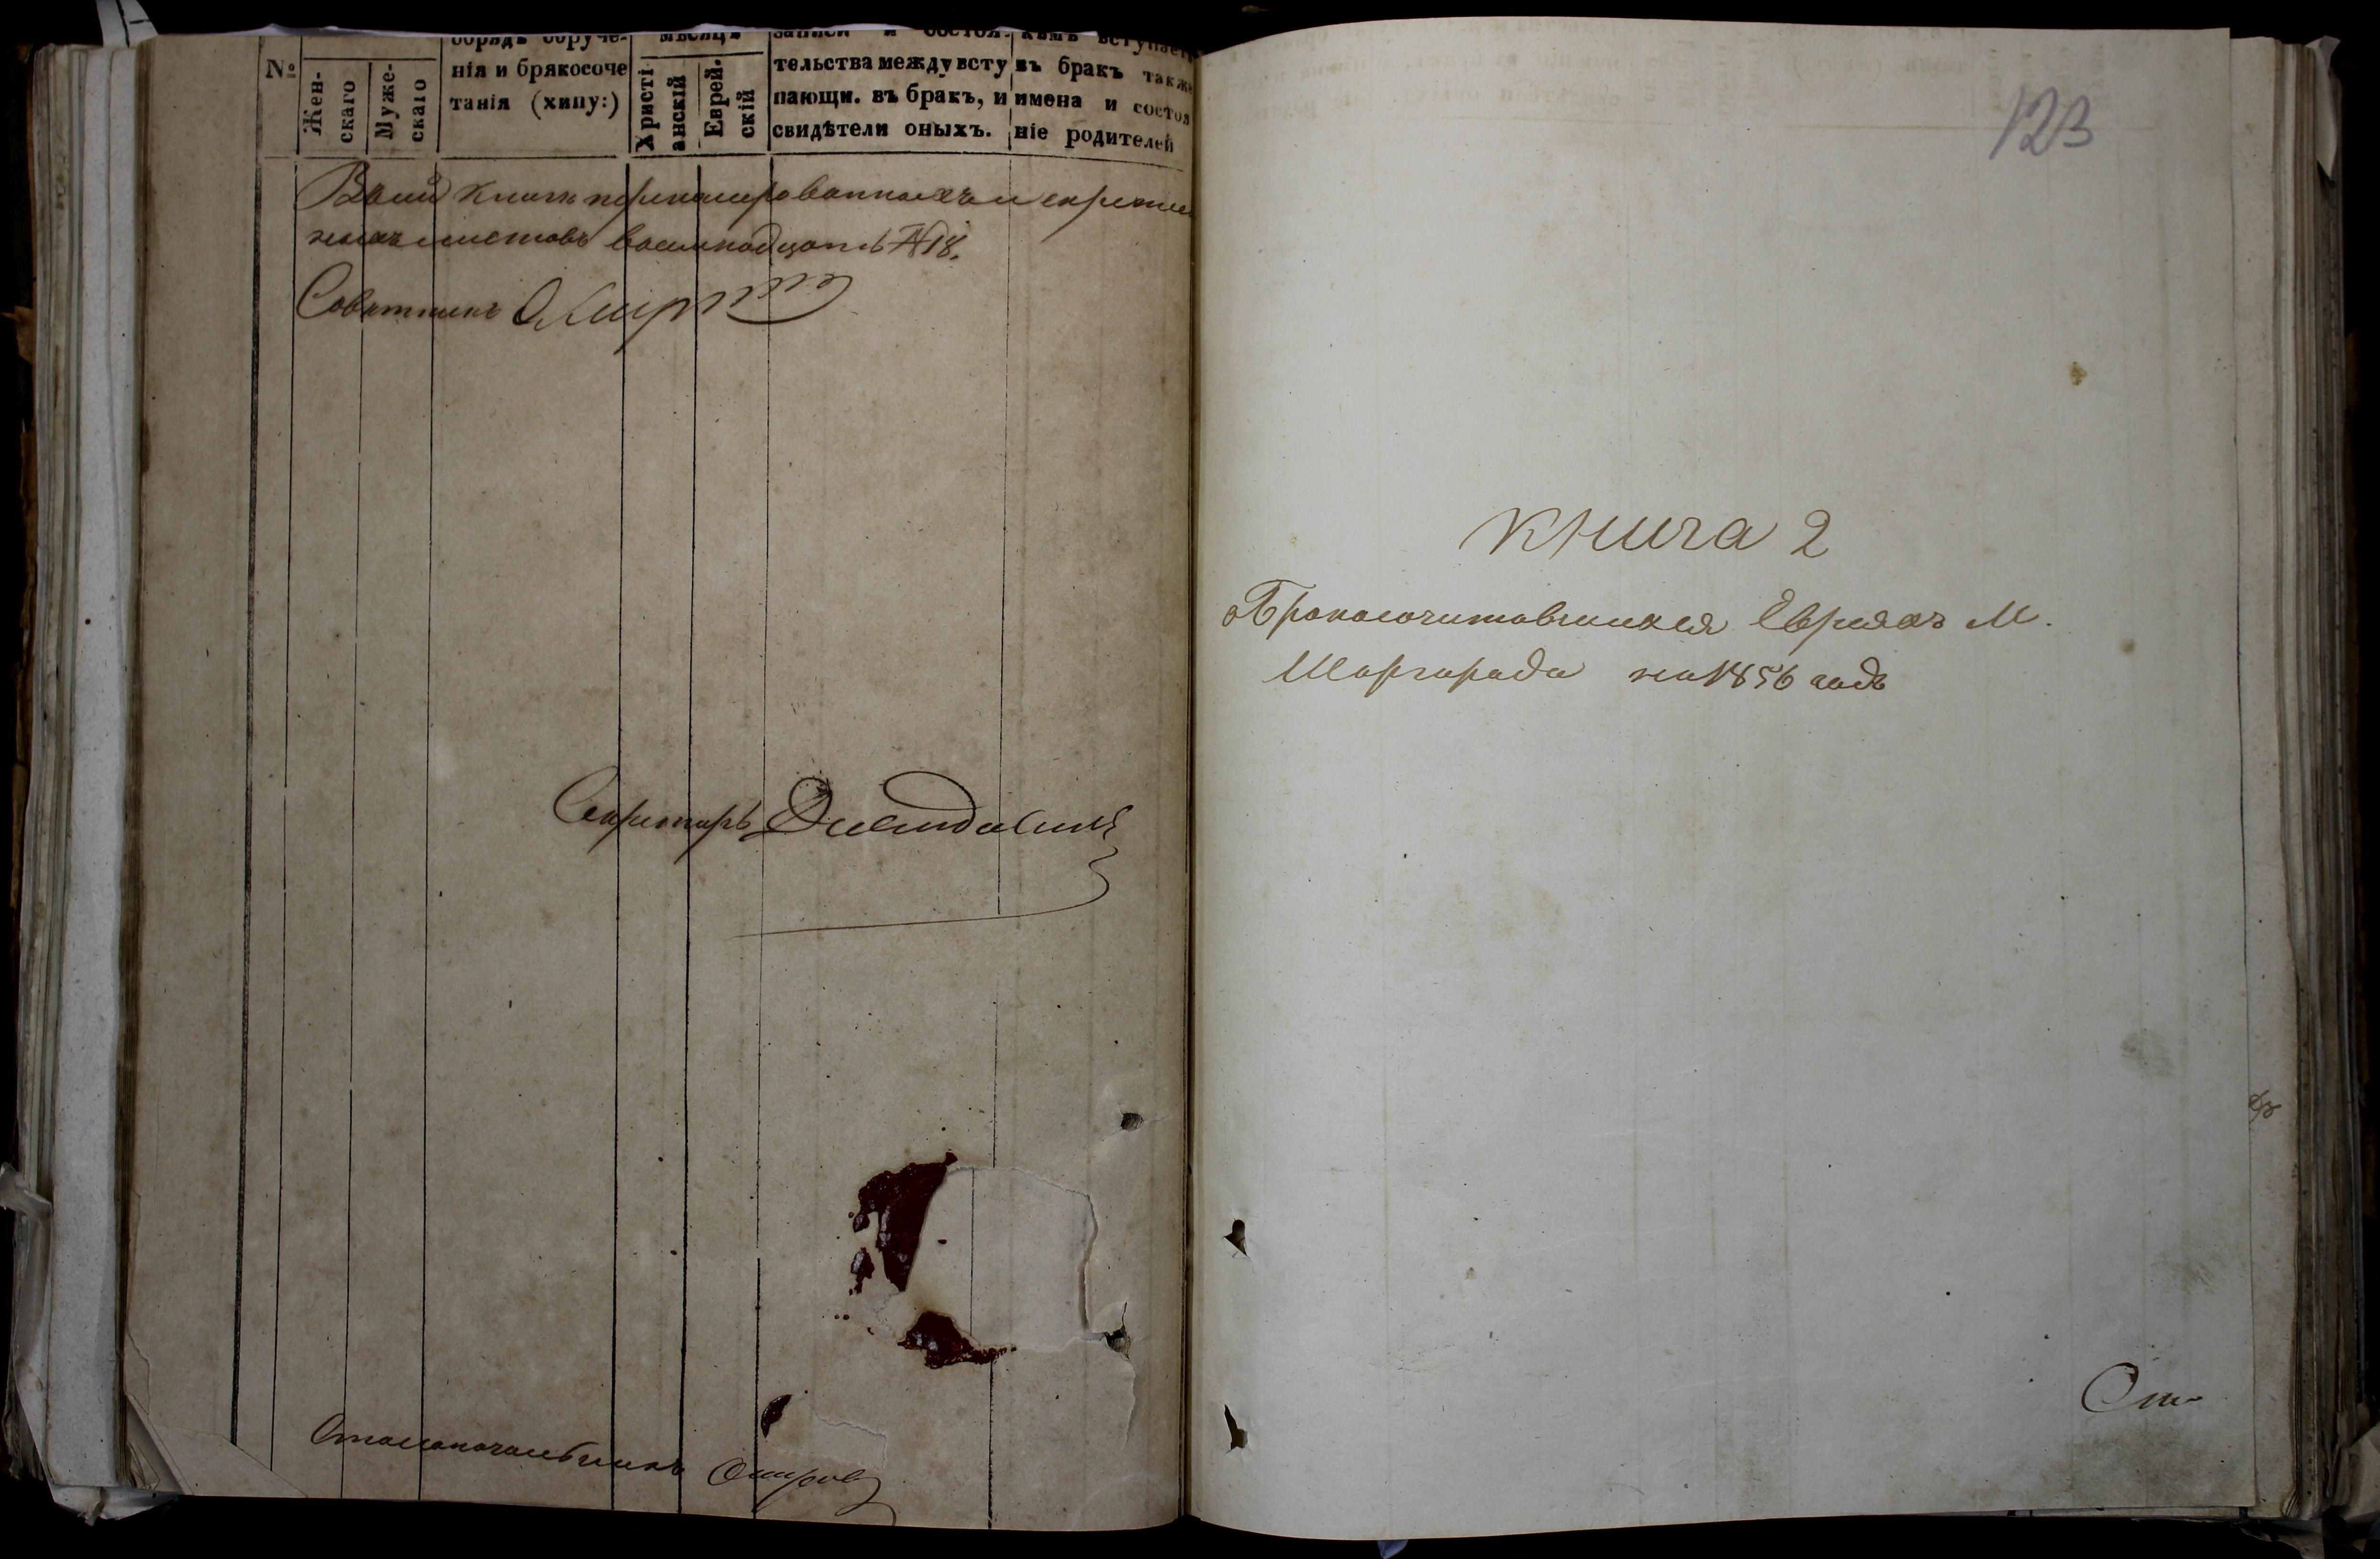 №
Жен-
скаго
Муже-
скаго
обрядъ обруче-
нія и брякосоче
танія (хипу:)
мѣсяцъ
Христі
анскій
Еврей-
скій
записи и состоя-
тельства между всту
пающи. въ бракъ, и
свидѣтели оныхъ.
кѣмъ вступаетъ
въ бракъ также
имена и состоя
ніе родителей
В сей книги перенумерованныхъ и скрепле
ныхъ листовъ восемнадцать № 18.
Советникъ
Секретарь
Столоначальникъ
123
Книга 2
о Бракосочитавшихся Евреяхъ М.
Шаргорода на 1856 годъ